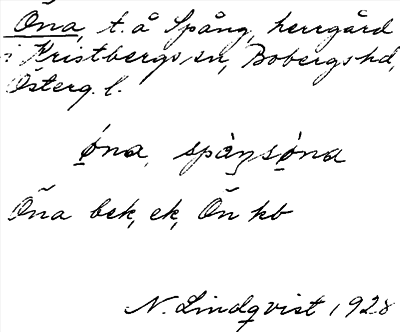 Öna, t. å Spång, herrgård
i Kristbergs sn, Bobergs hd,
Österg. l.
o̢na, spàŋso̢na
Öna bek, ek, Ön kb
N. Lindqvist 1928